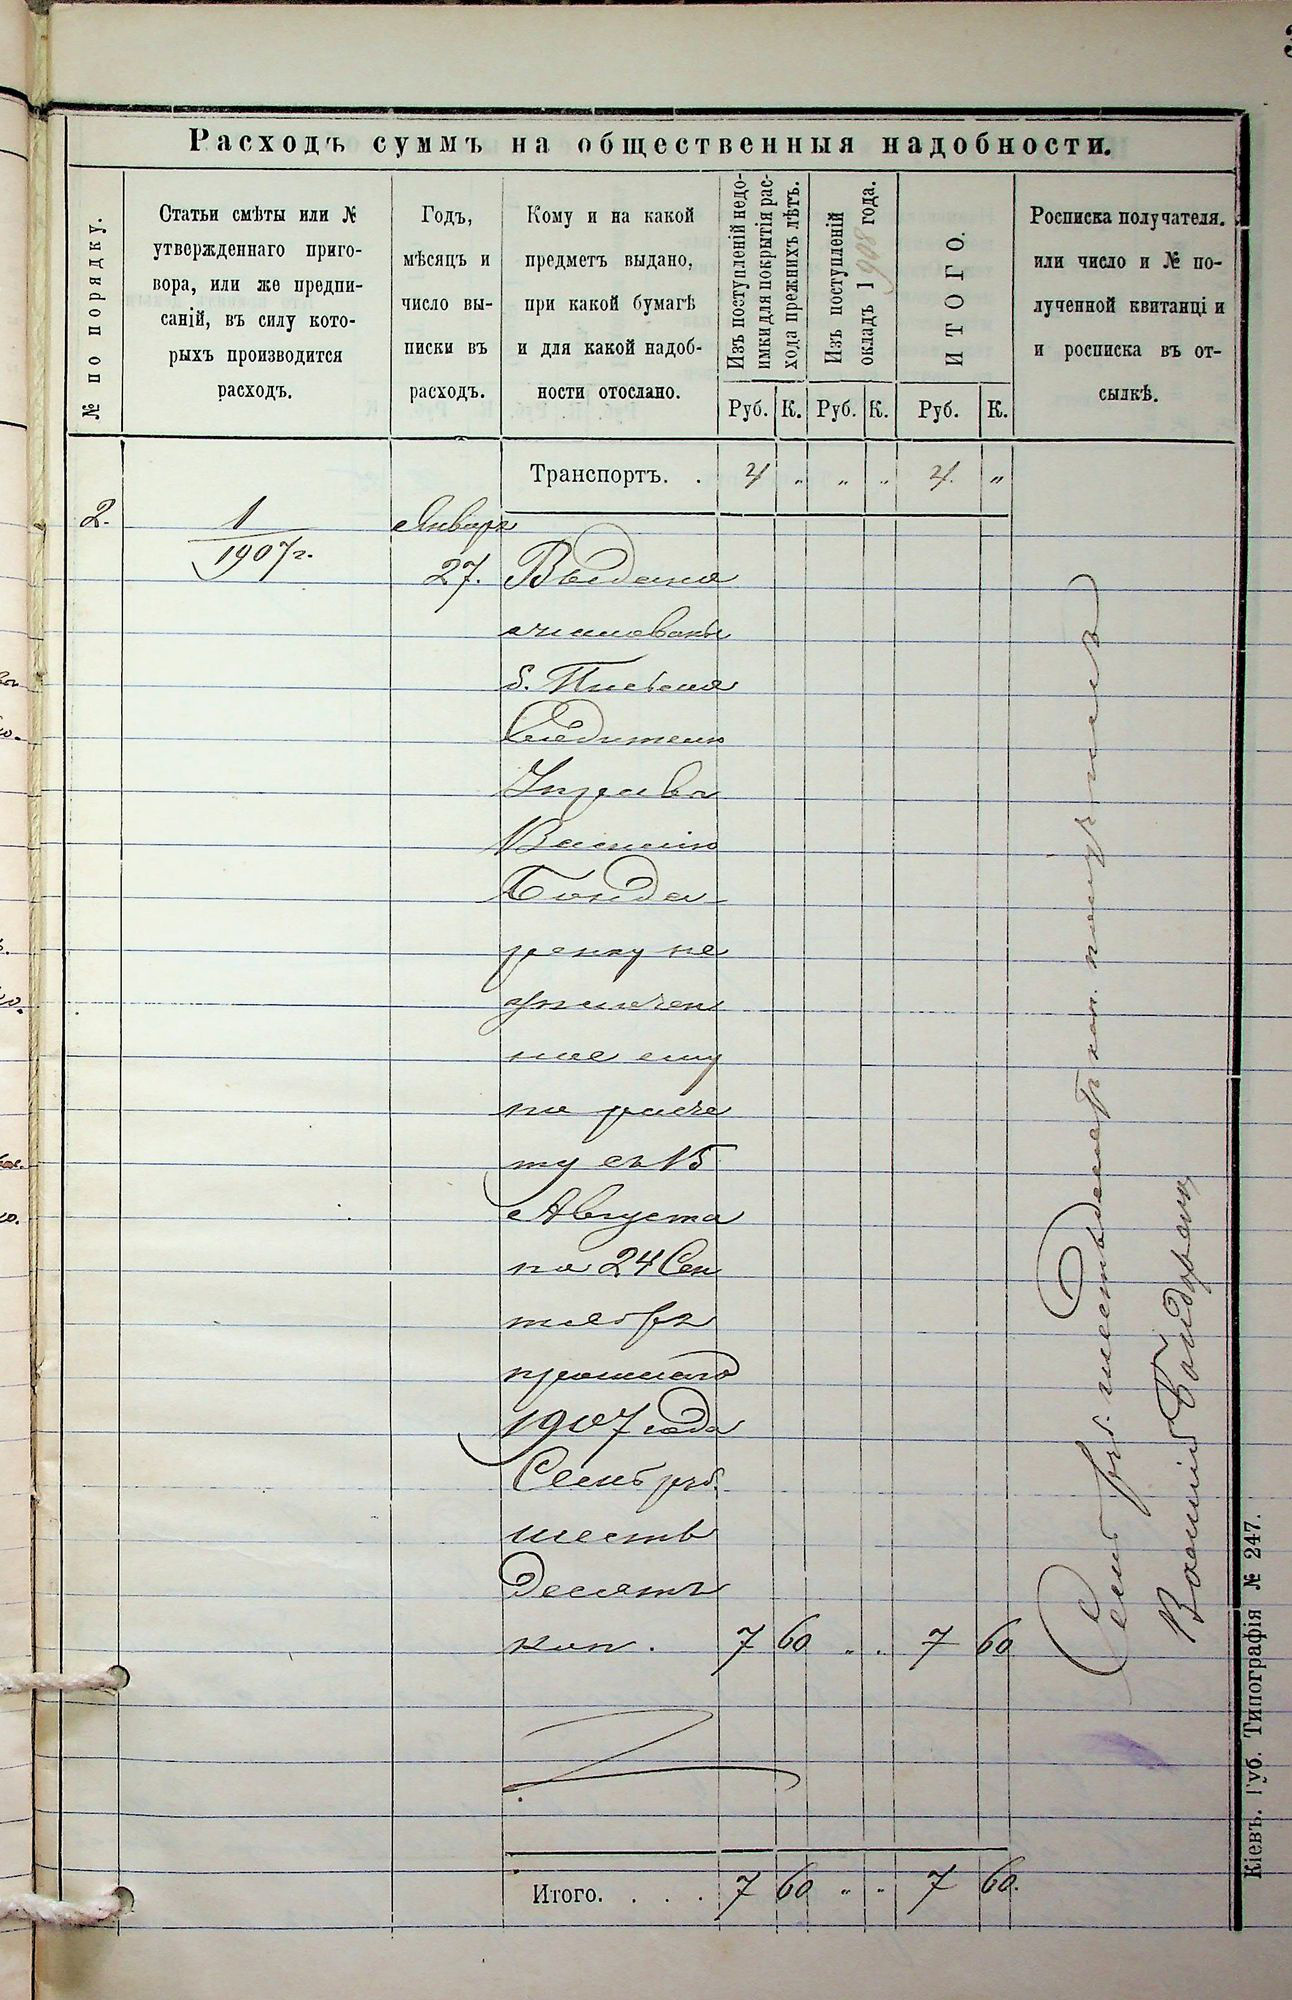 Расходъ суммъ на общественныя надобности.
№ по порядку.
Статьи смѣты или №
утвержденнаго приго-
вора, или же предпи-
саній, въ силу кото-
рыхъ производится
расходъ.
Годъ,
мѣсяцъ и
число вы-
писки въ
расходъ.
Кому и на какой
предметъ выдано,
при какой бумагѣ
и для какой надоб-
ности отослано.
Изъ поступленій недо-
имки для покрытія рас-
хода прежнихъ лѣтъ.
Изъ поступленій
окладъ 1908 года.
ИТОГО.
Росписка получателя.
или число и № по-
лученной квитанці и
и росписка въ от-
сылкѣ.
Руб. К. Руб. К. Руб. К.
Транспортъ. . 4 „ „ „ 4 „
2. 1 Январь
1907 г. 27. Выдано
жалованье
б.
Управы
Василію
Бонда-
ренку не
дополучен
ное ему
по расче
ту съ 15
Августа
по 24 Сен
тября
прошлаго
1907 года
Семь руб.
шесть
десятъ
коп. 7 60 „ „ 7 60
Итого. . . . 7 60 „ „ 7 60.
Семь руб. шестьдесятъ коп. получилъ
Василій Бондаренко
Кіевъ. Губ. Типографія № 247.